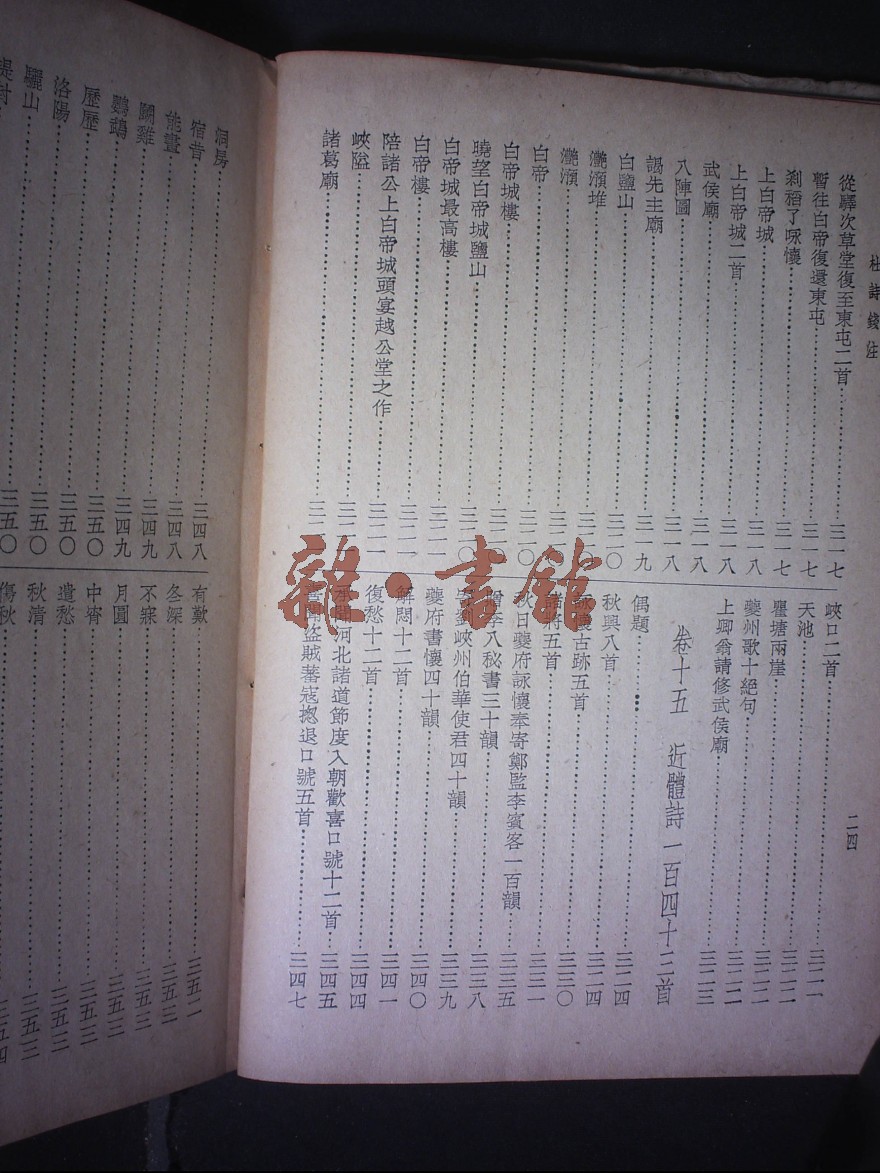 杜詩錢注
二四
從驛次草堂復至東屯二首 三一七
暫往白帝復還東屯 三一七
刹稻了咏懷 三一七
上白帝城 三一八
上白帝城二首 三一八
武侯廟 三一八
八陣圖 三一八
謁先主廟 三一九
白鹽山 三二〇
灩澦堆
灩澦
白帝
白帝城樓
曉望白帝城鹽山
白帝城最高樓 三二一
白帝樓 三二一
陪諸公上白帝城頭宴越公堂之作 三二一
峽隘
諸葛廟
峽口二首
天池 三二二
瞿塘兩崖 三二二
夔州歌十絕句 三二二
上卿翁請修武侯廟 三二三
卷十五 近體詩一百四十二首
偶題 三二四
秋興八首 三二四
詠懷古跡五首 三三〇
諸將五首 三三一
秋日夔府詠懷奉寄鄭監李賓客一百韻 三三五
贈李八秘書三十韻 三三八
劉峽州伯華使君四十韻 三三九
夔府書懷四十韻 三四〇
解悶十二首 三四一
復愁十二首 三四四
承聞河北諸道節度入朝歡喜口號十二首 三四五
喜聞盜賊蕃寇摠退口號五首 三四七
洞房 三四八
宿昔 三四八
能畫 三四八
鬭雞 三四九
鸚鵡 三四九
歷歷 三五〇
洛陽 三五〇
驪山 三五〇
提封 三五〇
有歎
冬深 三五二
不寐 三五三
月圓 三五三
中宵 三五三
遣愁 三五三
秋清 三五三
傷秋 三五四
雜·書館